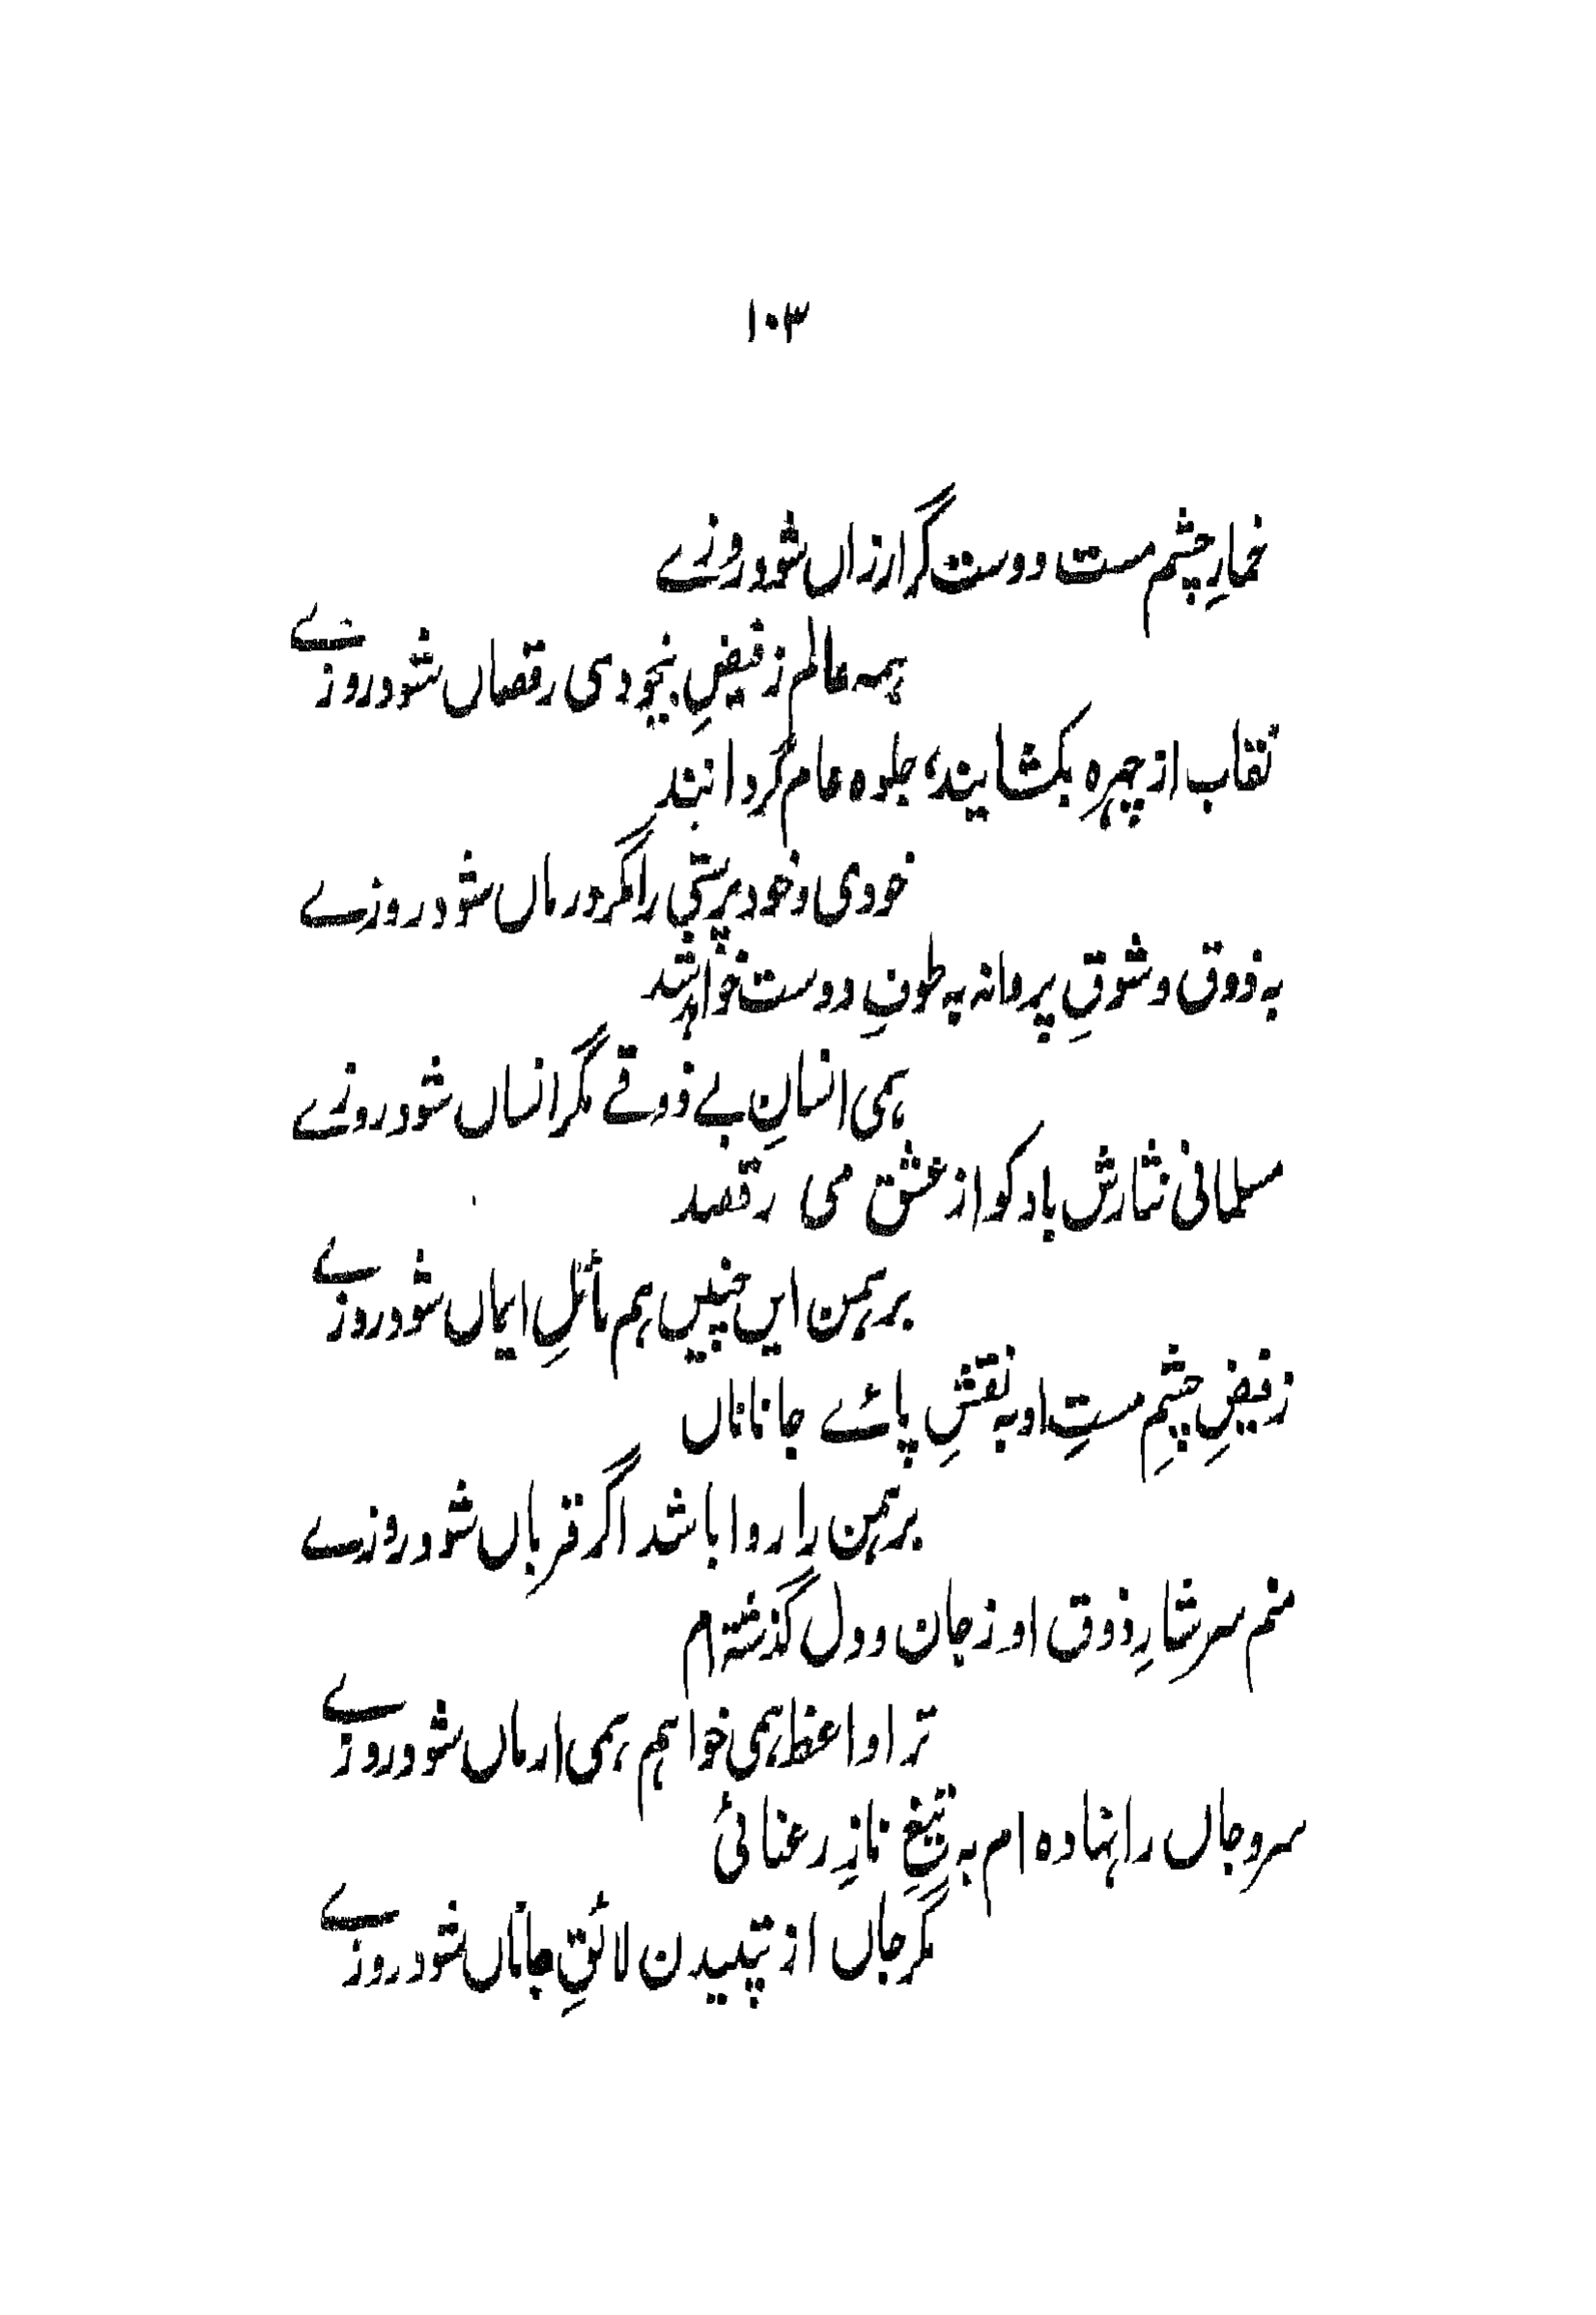 ۱۰۳
خمارِ چشم مست دوست گر ارزاں شود روزے
ہمہ عالم ز فیضِ بیخودی رقصاں شود روزے
نقاب از چہرہ بکشایند، جلوہ عام گردانند
خودی و خود پرستی را مگر درماں شود روزے
بہ ذوق و شوقِ پروانہ بہ طوفِ دوست خواہد شد
ہمی انسانِ بے ذوقے مگر انساں شود روزے
مسلمانی نثارش باد کو از عشق می رقصد
برہمن ایں چنیں ہم مائلِ ایماں شود روزے
ز فیضِ چشمِ مستِ او بہ نقشِ پائے جاناناں
برہمن را روا باشد اگر قرباں شود روزے
منم سرشارِ ذوق او ز جان و دل گذشتہ ام
ترا واعظ ہمی خواہم ہمی ارماں شود روزے
سر و جاں را نہادہ ام بہ تیغِ نازِ رعنائی
مگر جاں از تپیدن لائقِ جاناں شود روزے